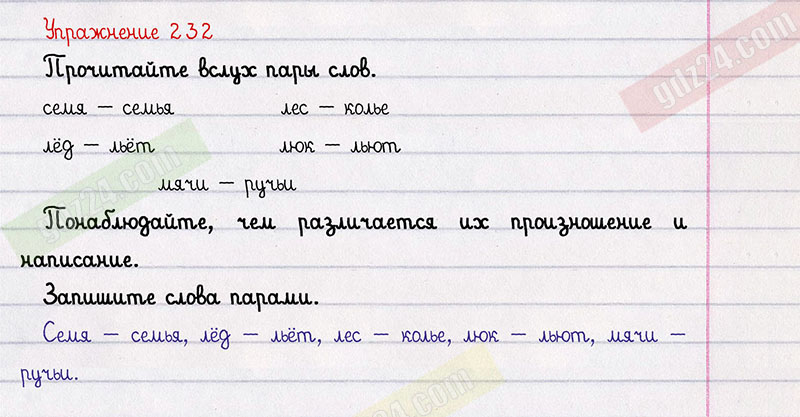 Упражнение 232
Прочитайте вслух пары слов.
семя — семья лес — колье
лёд — льёт люк — льют
мячи — ручьи
Понаблюдайте, чем различается их произношение и
написание.
Запишите слова парами.
Семя — семья, лёд — льёт, лес — колье, люк — льют, мячи —
ручьи.
gdz24.com
gdz24.com
gdz24.com